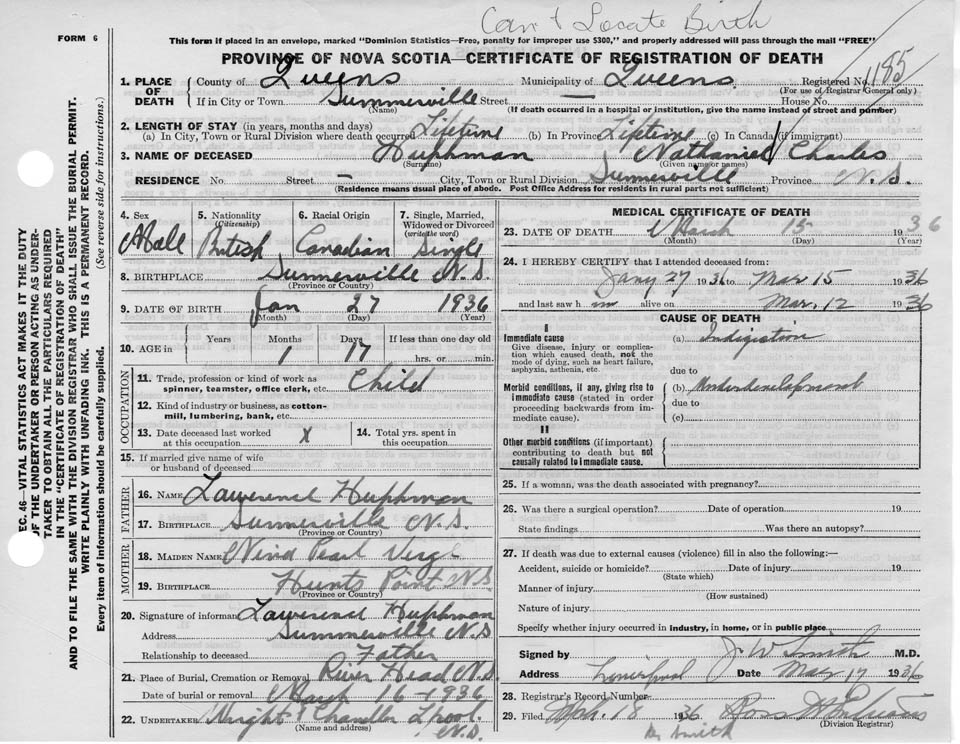 Can't Locate Birth
FORM 6
This form if placed in an envelope, marked "Dominion Statistics—Free, penalty for improper use $300," and properly addressed will pass through the mail "FREE"
PROVINCE OF NOVA SCOTIA—CERTIFICATE OF REGISTRATION OF DEATH
1. PLACE OF DEATH County of Queens Municipality of Queens Registered No. 1185
(For use of Registrar General only)
If in City or Town Summerville Street — House No.
(Name) (If death occurred in a hospital or institution, give the name instead of street and number)
2. LENGTH OF STAY (in years, months and days)
(a) In City, Town or Rural Division where death occurred Lifetime (b) In Province Lifetime (c) In Canada (if immigrant)
3. NAME OF DECEASED Huphman Nathaniel Charles
(Surname) (Given name or names)
RESIDENCE No. Street — City, Town or Rural Division Summerville Province N.S.
(Residence means usual place of abode. Post Office Address for residents in rural parts not sufficient)
4. Sex Male
5. Nationality (Citizenship) British
6. Racial Origin Canadian
7. Single, Married, Widowed or Divorced (write the word) Single
8. BIRTHPLACE Summerville N.S.
(Province or Country)
9. DATE OF BIRTH Jan 27 1936
(Month) (Day) (Year)
10. AGE in Years Months 1 Days 17 If less than one day old
hrs. or min.
OCCUPATION
11. Trade, profession or kind of work as spinner, teamster, office clerk, etc. Child
12. Kind of industry or business, as cotton-mill, lumbering, bank, etc.
13. Date deceased last worked at this occupation X
14. Total yrs. spent in this occupation.
15. If married give name of wife or husband of deceased
FATHER
16. NAME Lawerence Huphman
17. BIRTHPLACE Summerville N.S.
(Province or Country)
MOTHER
18. MAIDEN NAME Nina Pearl
19. BIRTHPLACE Hunts Point N.S.
(Province or Country)
20. Signature of informant Lawerence Huphman
Address Summerville N.S
Relationship to deceased Father
21. Place of Burial, Cremation or Removal River Head N.S.
Date of burial or removal March 16-1936
22. UNDERTAKER Wright & Chandler L'pool N.S.
(Name and address)
MEDICAL CERTIFICATE OF DEATH
23. DATE OF DEATH March 15 1936
(Month) (Day) (Year)
24. I HEREBY CERTIFY that I attended deceased from:
Jany 27 1936 to Mar 15 1936
and last saw h im alive on Mar. 12 1936
CAUSE OF DEATH
I
Immediate cause
Give disease, injury or complication which caused death, not the mode of dying, such as heart failure, asphyxia, asthenia, etc.
(a) Indigestion
due to
Morbid conditions, if any, giving rise to immediate cause (stated in order proceeding backwards from immediate cause).
(b) Underdevelopment
due to
(c)
II
Other morbid conditions (if important) contributing to death but not causally related to immediate cause.
25. If a woman, was the death associated with pregnancy?
26. Was there a surgical operation? Date of operation 19
State findings Was there an autopsy?
27. If death was due to external causes (violence) fill in also the following:—
Accident, suicide or homicide? Date of injury 19
(State which)
Manner of injury
(How sustained)
Nature of injury
Specify whether injury occurred in industry, in home, or in public place
Signed by J. W Smith M.D.
Address Liverpool Date Mar 17 1936
28. Registrar's Record Number
29. Filed Mch. 18 1936
(Division Registrar)
Smith
SEC. 46—VITAL STATISTICS ACT MAKES IT THE DUTY
OF THE UNDERTAKER OR PERSON ACTING AS UNDER-
TAKER TO OBTAIN ALL THE PARTICULARS REQUIRED
IN THE "CERTIFICATE OF REGISTRATION OF DEATH"
AND TO FILE THE SAME WITH THE DIVISION REGISTRAR WHO SHALL ISSUE THE BURIAL PERMIT.
WRITE PLAINLY WITH UNFADING INK. THIS IS A PERMANENT RECORD.
Every item of information should be carefully supplied. (See reverse side for instructions.)